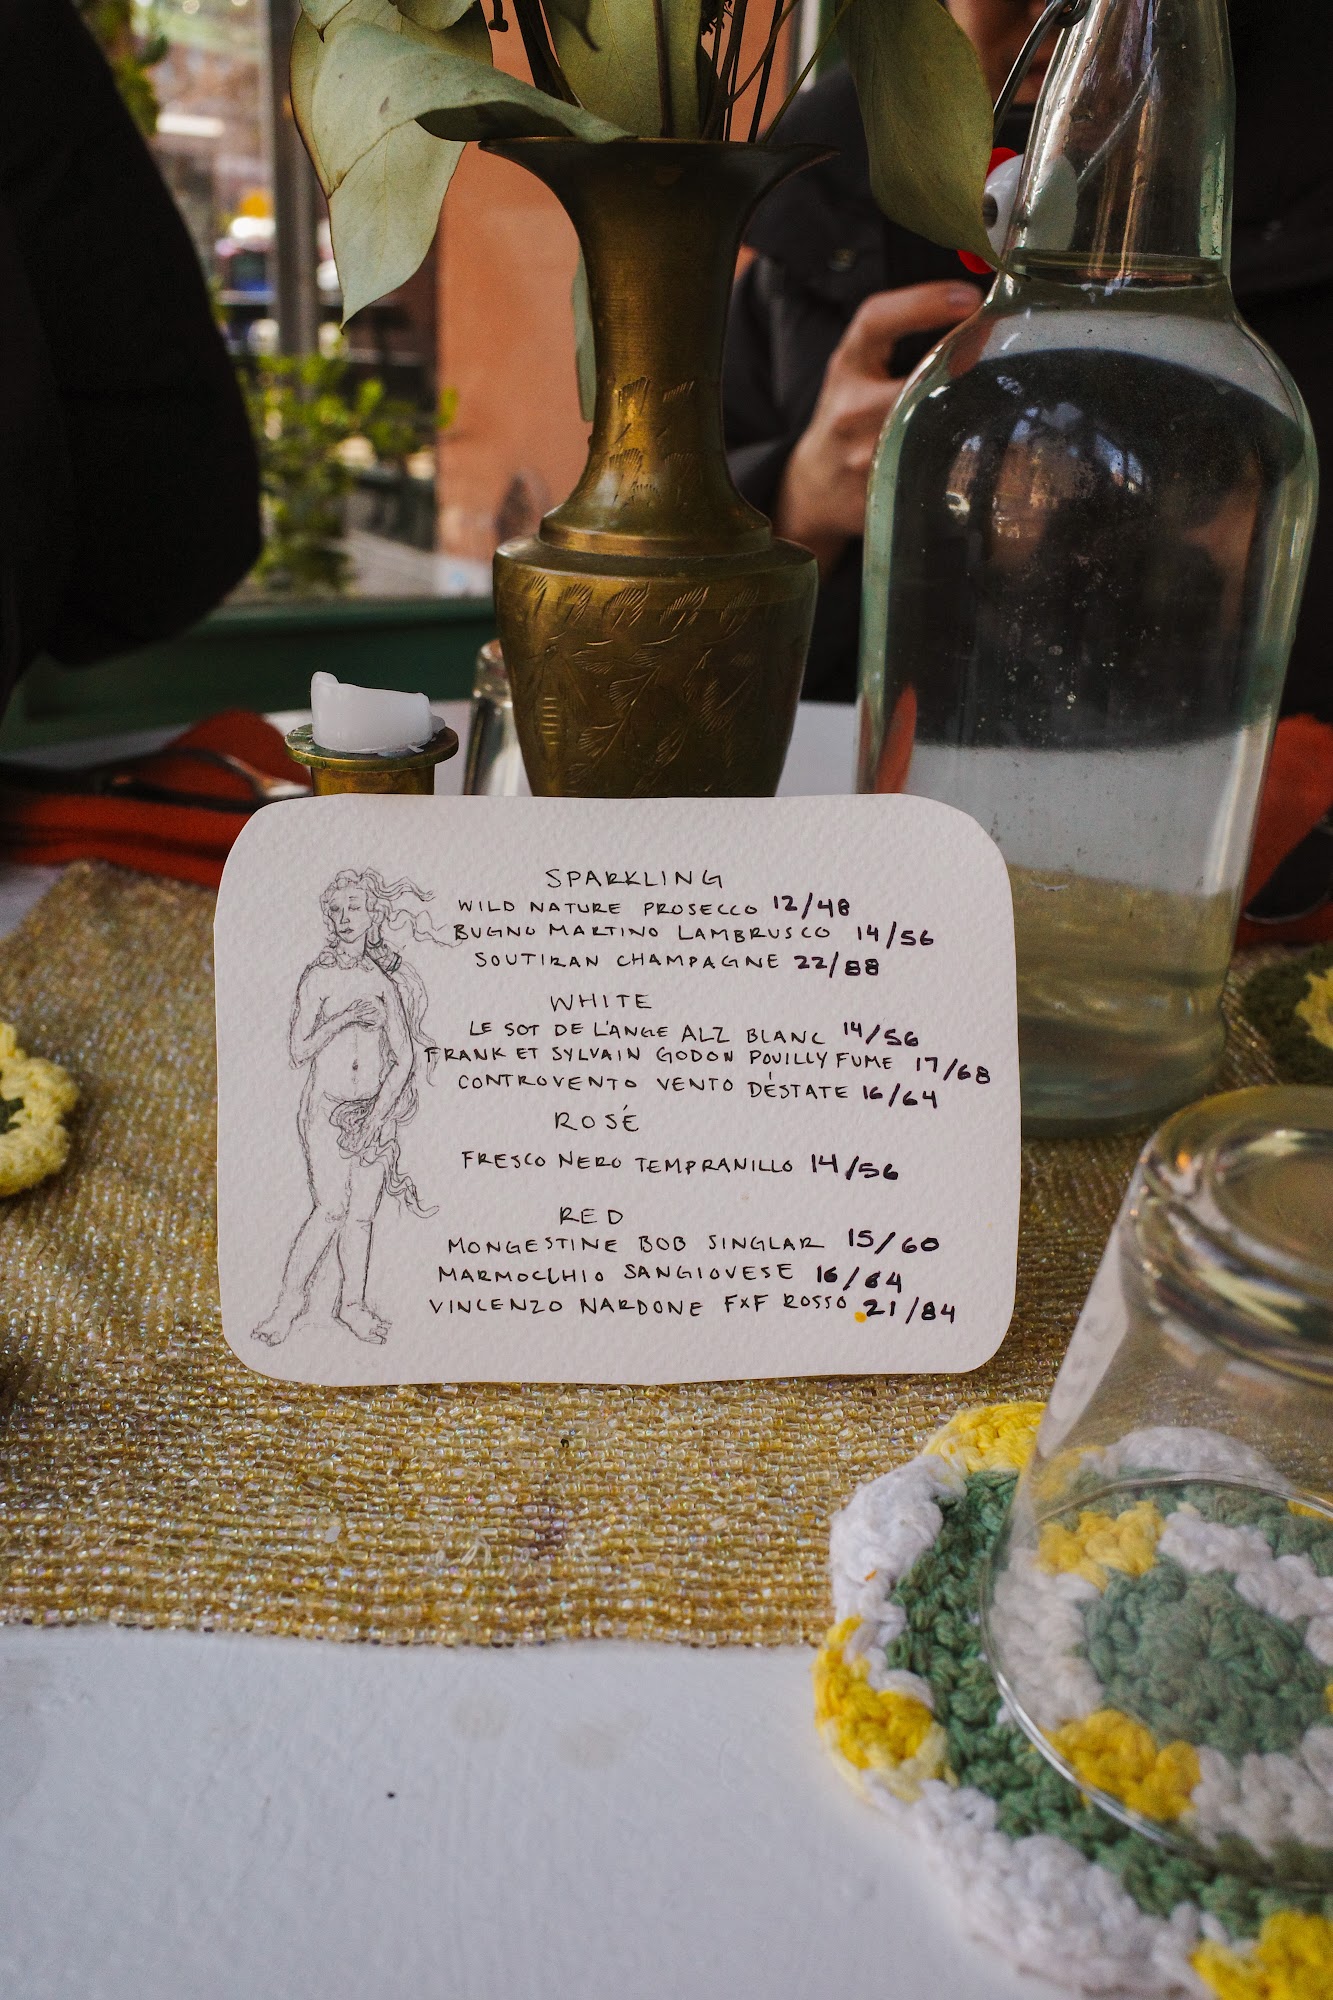 SPARKLING
WILD NATURE PROSECCO 12/48
BUGNO MARTINO LAMBRUSCO 14/56
SOUTIRAN CHAMPAGNE 22/88
WHITE
LE SOT DE L'ANGE ALZ BLANC 14/56
FRANK ET SYLVAIN GODON POUILLY FUME 17/68
CONTROVENTO VENTO DÉSTATE 16/64
ROSÉ
FRESCO NERO TEMPRANILLO 14/56
RED
MONGESTINE BOB SINGLAR 15/60
MARMOCCHIO SANGIOVESE 16/64
VINCENZO NARDONE FXF ROSSO 21/84